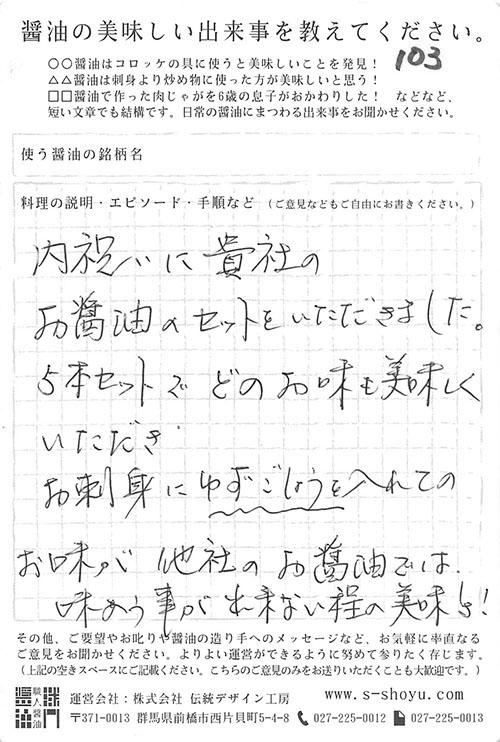 醤油の美味しい出来事を教えてください。
○○醤油はコロッケの具に使うと美味しいことを発見！
103
△△醤油は刺身より炒め物に使った方が美味しいと思う！
□□醤油で作った肉じゃがを6歳の息子がおかわりした！ などなど、
短い文章でも結構です。日常の醤油にまつわる出来事をお聞かせください。
使う醤油の銘柄名
料理の説明・エピソード・手順など （ご意見などもご自由にお書きください。）
内祝いに貴社の
お醤油のセットをいただきました。
5本セットで どのお味も美味しく
いただき
お刺身にゆずごしょうを入れての
お味が 他社のお醤油では、
味わう事が出来ない程の美味さ！
その他、ご要望やお叱りや醤油の造り手へのメッセージなど、お気軽に率直なる
ご意見をお聞かせください。よりよい運営ができるように努めて参りたく存じます。
（上記の空きスペースにご記載ください。こちらのご意見のみをお送りいただくことも大歓迎です。）
職人醤油
運営会社：株式会社 伝統デザイン工房 www.s-shoyu.com
〒371-0013 群馬県前橋市西片貝町5-4-8 027-225-0012 027-225-0013